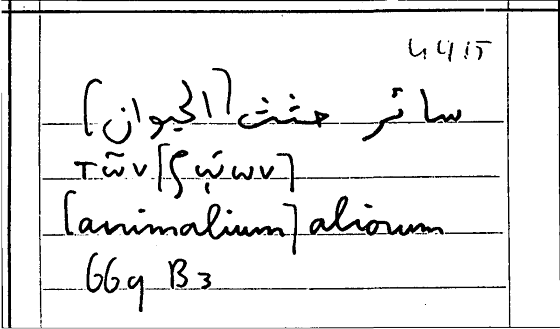 سائر جثث [الحيوان]
τῶν [ζῴων]
[animalium] aliorum
669 B 3